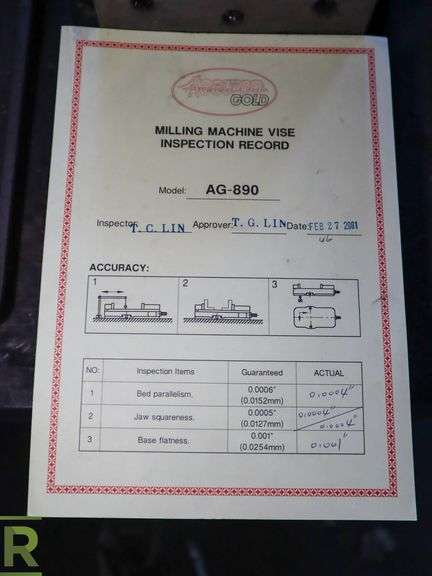 GOLD
MILLING MACHINE VISE
INSPECTION RECORD
Model: AG-890
Inspector: T. C. LIN Approver: T. G. LIN Date: FEB 27 2001
ACCURACY:
1 2 3
NO: Inspection Items Guaranteed ACTUAL
1 Bed parallelism. 0.0006" (0.0152mm) 0.0004"
2 Jaw squareness. 0.0005" (0.0127mm) 0.0004" 0.0004"
3 Base flatness. 0.001" (0.0254mm) 0.001"
R